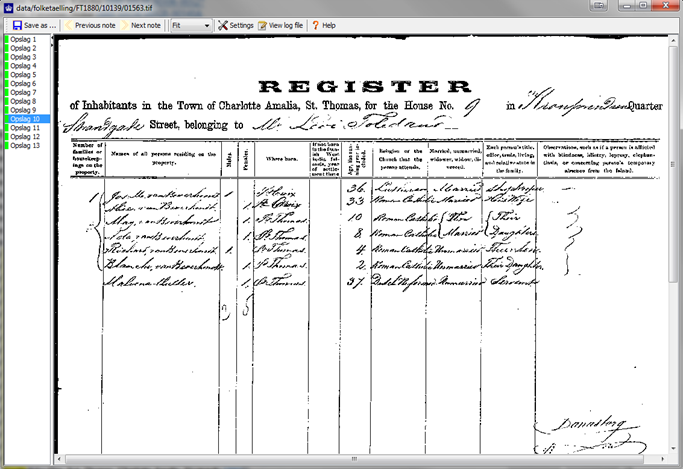 data/folketaelling/FT1880/10139/01563.tif
Save as ... Previous note Next note Fit Settings View log file Help
Opslag 1
Opslag 2
Opslag 3
Opslag 4
Opslag 5
Opslag 6
Opslag 7
Opslag 8
Opslag 9
Opslag 10
Opslag 11
Opslag 12
Opslag 13
REGISTER
of Inhabitants in the Town of Charlotte Amalia, St. Thomas, for the House No. 9 in Quarter
Strandgade Street, belonging to Mr. Levi Toledano
Number of families or housekeepings on the property. Names of all persons residing on the property. Males. Females. Where born. Religion or the Church that the person attends. Married, unmarried, widower, widow, divorced. Each person's title, office, trade, living, and said relation in the family. Observations, such as if a person is afflicted with blindness, idiotcy, leprosy, elephantiasis, or concerning person's temporary absence from the Island.
1 van Beverhoudt 1 St Croix 36 Lutheran Married Shopkeeper
van Beverhoudt 1. St Croix 33 Roman Catholic Married His Wife
May, van Beverhoudt 1. St Thomas 10 Roman Catholic Their
van Beverhoudt 1. St Thomas. 8 Roman Catholic Daughters
Richard, van Beverhoudt. 1. St Thomas. 4. Roman Catholic Unmarried
Blanche, van Beverhoudt 1. St Thomas. 2. Roman Catholic Unmarried Their Daughter
Malvena 1. St Thomas. 37. Dutch Reformed Unmarried Servant